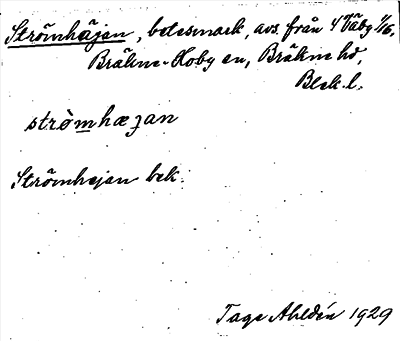 Strömhäjan, betesmark, avs. från 4 Väby 1/16,
Bräkne-Hoby sn, Bräkne hd,
Blek. l.
strò̀mhæʒan
Strömhejan bek.
Tage Ahldén 1929